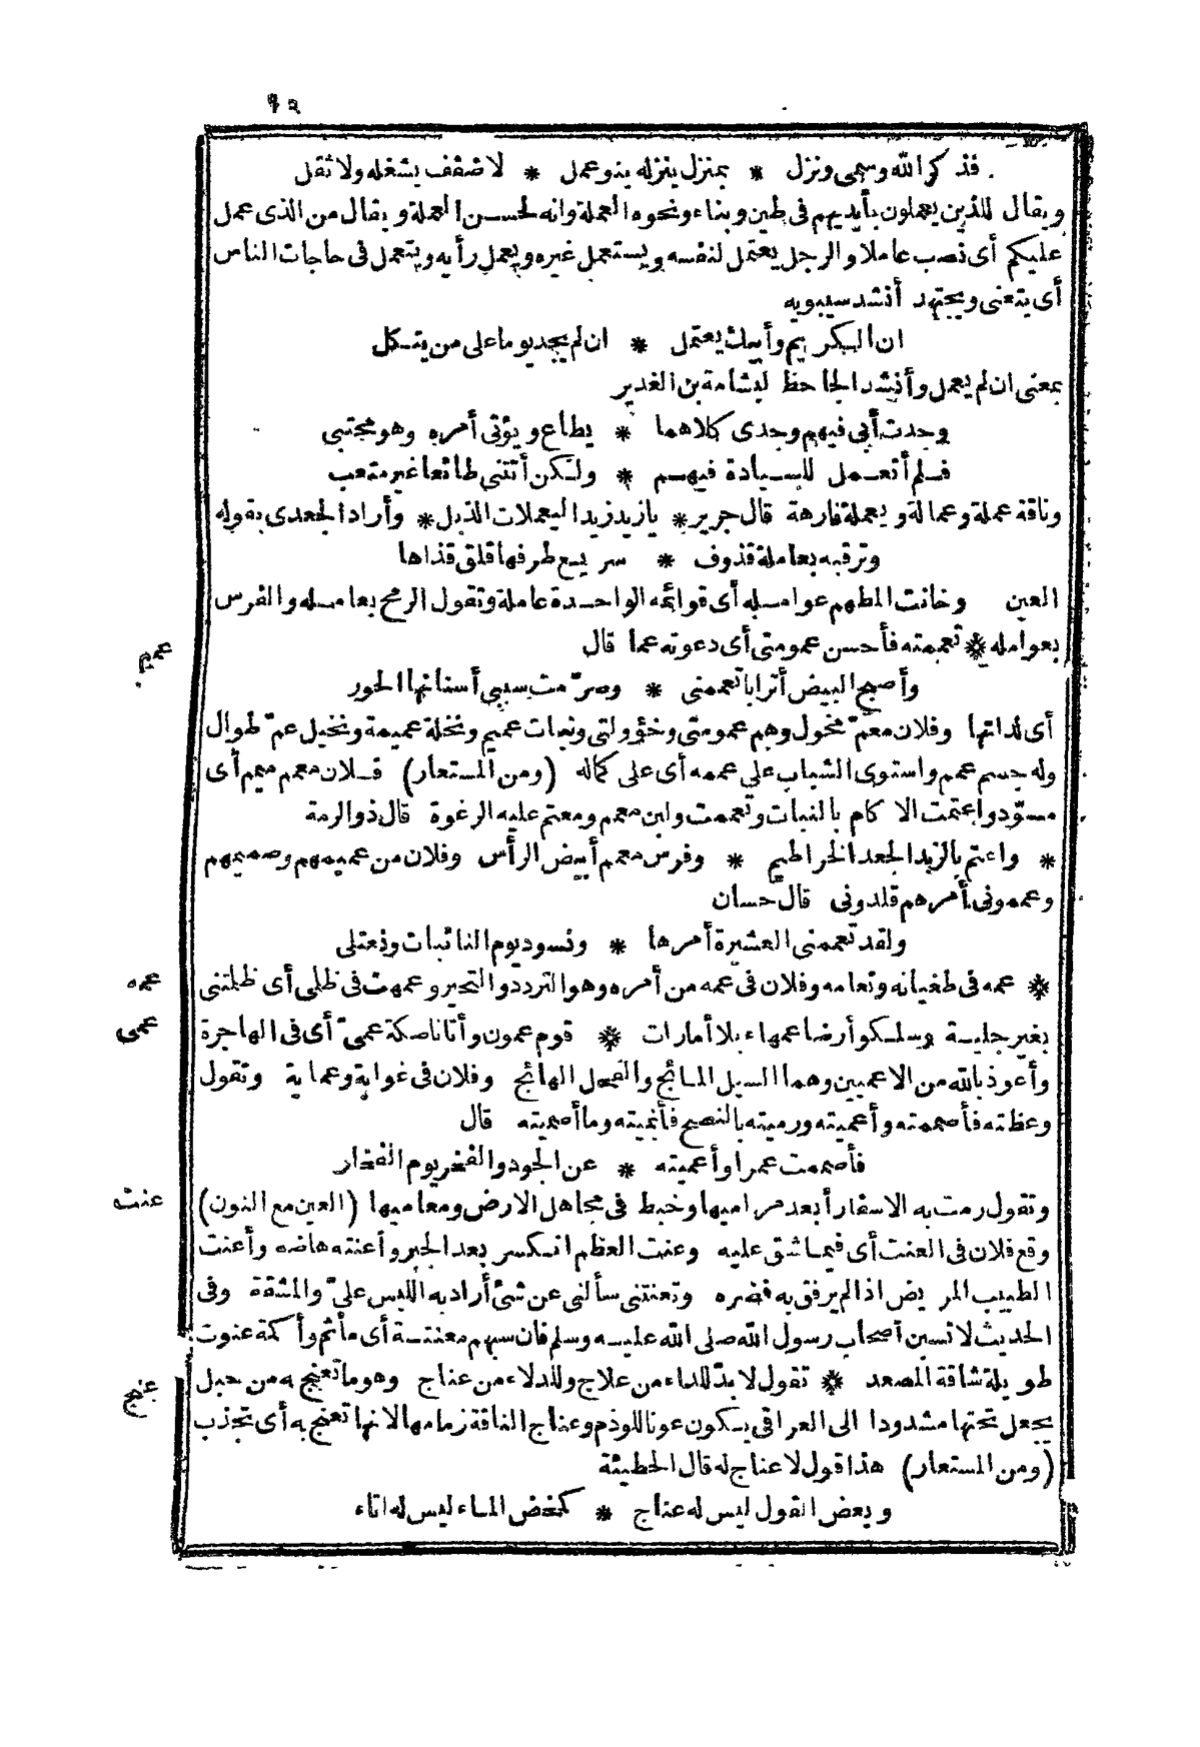 ٩٢
فذكر الله وسمى ونزل * بمنزل ينزله بنو عمل * لا ضفف يشغله ولا ثقل
ويقال للذين يعملون بأيديهم فى طين وبناء ونحوه العملة وانه لحسن العملة ويقال من الذى عمل
عليكم أى نصب عاملا والرجل يعتمل لنفسه ويستعمل غيره ويعمل رأيه ويتعمل فى حاجات الناس
أى يتعنى ويجتهد أنشد سيبويه
ان الكريم وأبيك يعتمل * ان لم يجد يوما على من يتكل
بمعنى ان لم يعمل وأنشد الجاحظ لبشامة بن الغدير
وجدت أبى فيهم وجدى كلاهما * يطاع ويؤتى أمره وهو محتبى
فلم أتعمل للسيادة فيهم * ولكن أتتنى طائعا غير متعب
وناقة عملة وعمالة ويعملة فارهة قال جرير * يا زيد زيد اليعملات الذبل * وأراد الجعدى بقوله
وترقبه بعاملة قذوف * سريع طرفها قلق قذاها
العين وخانت المطهم عوامله أى قوائمه الواحدة عاملة وتقول الرمح بعامله والفرس
بعوامله * تعممته فأحسن عمومتى أى دعوته عما قال
عمم
وأصبح البيض أترابا تعممنى * وصرّمت سببى أسنانها الحور
أى لداتها وفلان معمّ مخول وهم عمومتى وخؤولتى ونبات عميم ونخلة عميمة ونخيل عمّ طوال
وله جسم عمم واستوى الشباب على عممه أى على كماله (ومن المستعار) فلان معمم ميم أى
مسوّد واعتمت الاكام بالنبات وتعممت ولبن معمم ومعتم عليه الرغوة قال ذو الرمة
* واعتم بالزبد الجعد الخراطيم * وفرس معمم أبيض الرأس وفلان من عميمهم وصميمهم
وعممونى أمرهم قلدونى قال حسان
ولقد تعممنى العشيرة أمرها * ونسود يوم النائبات ونعتلى
* عمه فى طغيانه وتعامه وفلان فى عمه من أمره وهو التردد والتحير وعمهت فى ظلى أى ظلمتنى
عمه
بغير جلية وسلكوا أرضا عمهاء بلا أمارات * قوم عمون وأتانا صكة عمىّ أى فى الهاجرة
عمى
وأعوذ بالله من الاعميين وهما السيل المائج والفحل الهائج وفلان فى غواية وعماية وتقول
وعظته فأصممته وأعميته ورميته بالنصح فأنميته وما أصميته قال
فأصممت عمرا وأعميته * عن الجود والفخر يوم الفخار
وتقول رمت به الاسفار أبعد مراميها وخبط فى مجاهل الارض ومعاميها (العين مع النون)
عنت
وقع فلان فى العنت أى فيما شق عليه وعنت العظم انكسر بعد الجبر وأعنته هاضه وأعنت
الطبيب المريض اذا لم يرفق به فضره وتعنتنى سألنى عن شئ أراد به اللبس علىّ والمشقة وفى
الحديث لا تسبن أصحاب رسول الله صلى الله عليه وسلم فان سبهم معنتة أى مأثم وأكمة عنوت
طويلة شاقة المصعد * تقول لا بدّ للداء من علاج وللدلاء من عناج وهو ما تعنج به من حبل
عنج
يجعل تحتها مشدودا الى العراقى يكون عونا للوذم وعناج الناقة زمامها لانها تعنج به أى تجذب
(ومن المستعار) هذا قول لا عناج له قال الحطيئة
وبعض القول ليس له عناج * كمخض الماء ليس له اتاء